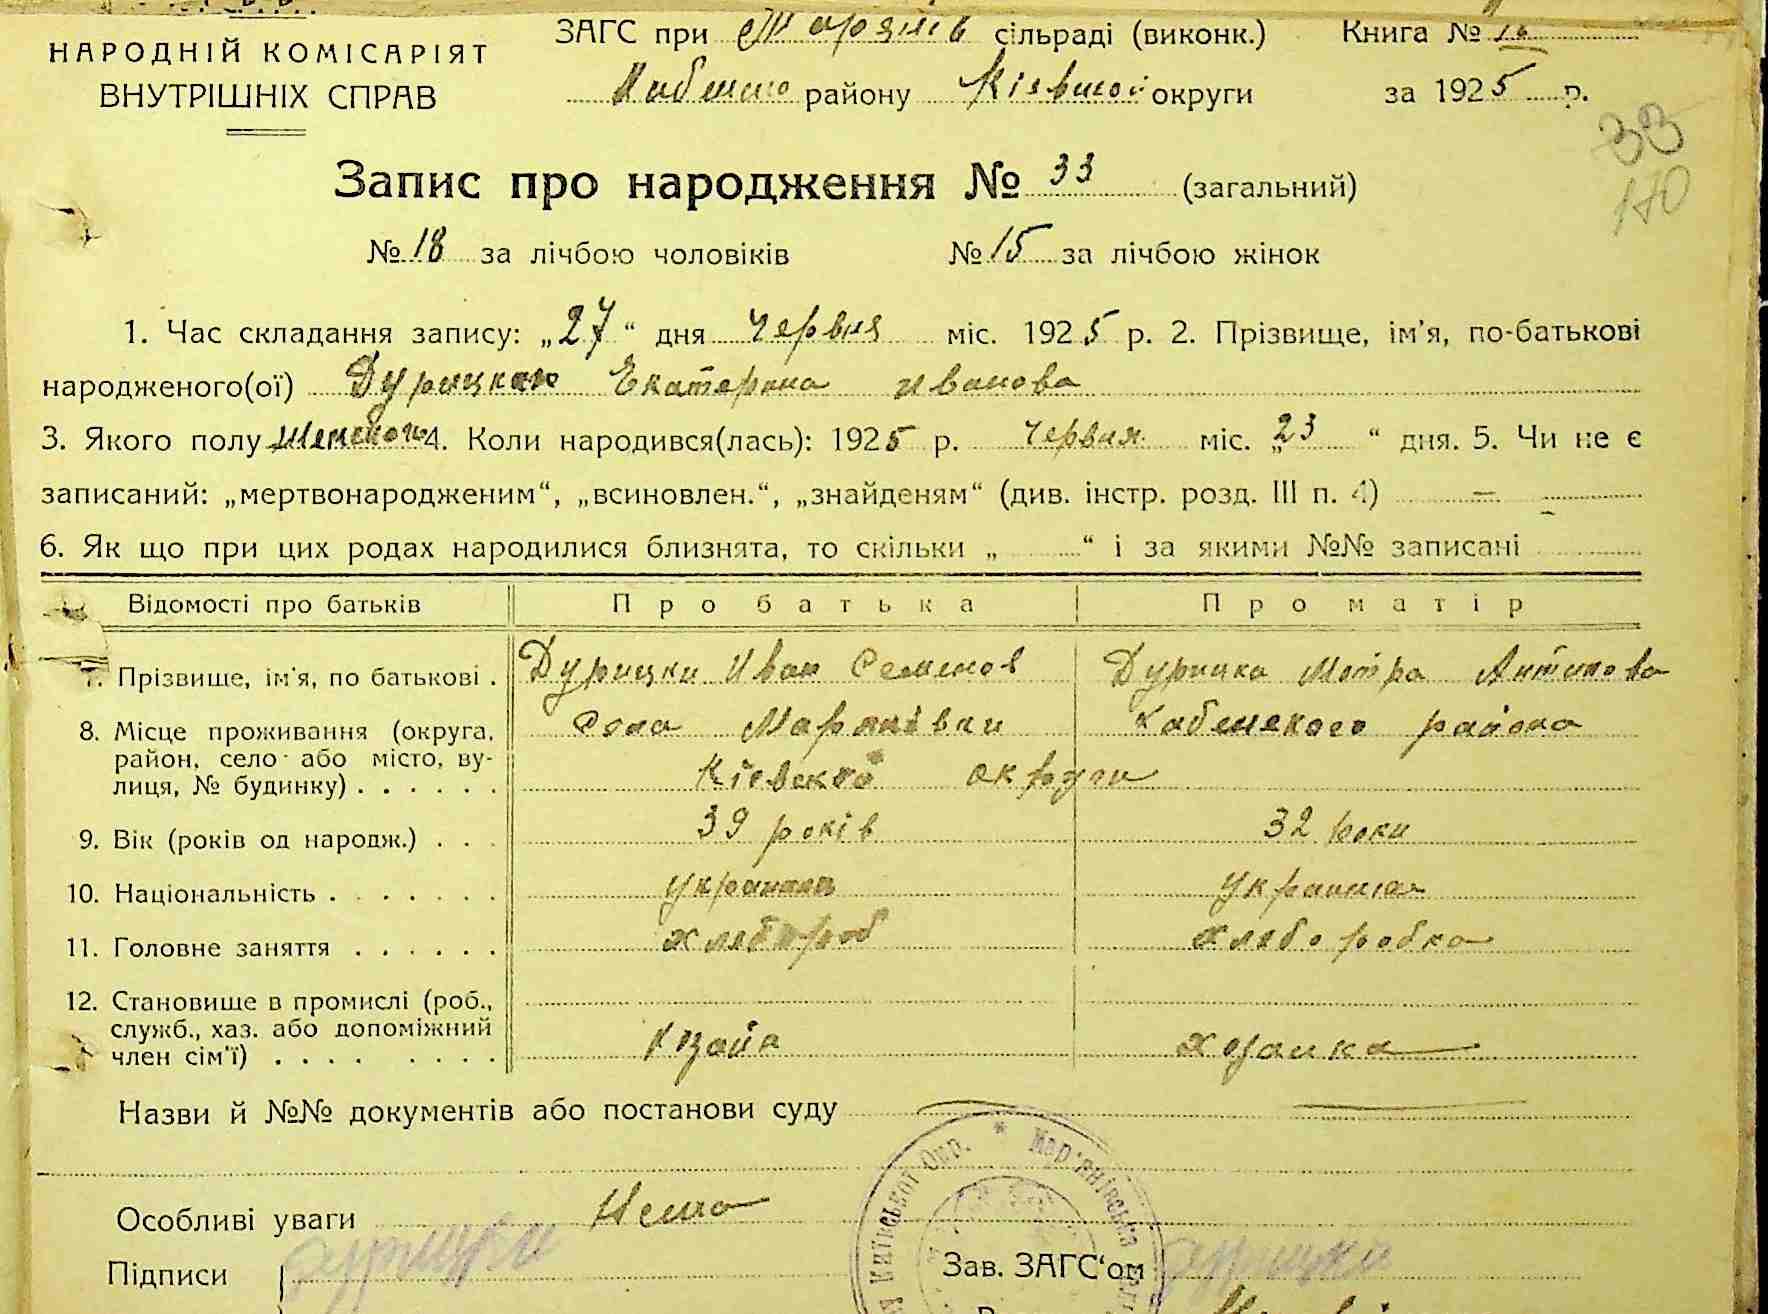 НАРОДНІЙ КОМІСАРІЯТ
ВНУТРІШНІХ СПРАВ
ЗАГС при сільраді (виконк.) Книга №
району округи за 1925 р.
33
170
Запис про народження № 33 (загальний)
№ 18 за лічбою чоловіків № 15 за лічбою жінок
1. Час складання запису: „27“ дня червня міс. 1925 р. 2. Прізвище, ім'я, по-батькові
народженого(ої) Дурицкою Екатерина Иванова
3. Якого полу 4. Коли народився(лась): 1925 р. червня міс. „23“ дня. 5. Чи не є
записаний: „мертвонародженим“, „всиновлен.“, „знайденям“ (див. інстр. розд. III п. 4) —
6. Як що при цих родах народилися близнята, то скільки „ “ і за якими №№ записані
Відомості про батьків Про батька Про матір
7. Прізвище, ім'я, по батькові . Дурицки Иван Семенов Дурицка Мотра Антипова
8. Місце проживання (округа, район, село або місто, вулиця, № будинку) . . . . . . Села Марянівки района
Кіевской округи
9. Вік (років од народж.) . . . 39 років 32 роки
10. Національність . . . . . . .
11. Головне заняття . . . . . . хлебороб хлеборобка
12. Становище в промислі (роб., служб., хаз. або допоміжний член сім'ї) . . . . . . . . хозаika
Назви й №№ документів або постанови суду
Особливі уваги Нема
Підписи Дурицки Зав. ЗАГС‘ом Дурицки
Київської Окр. * Мар'янівська